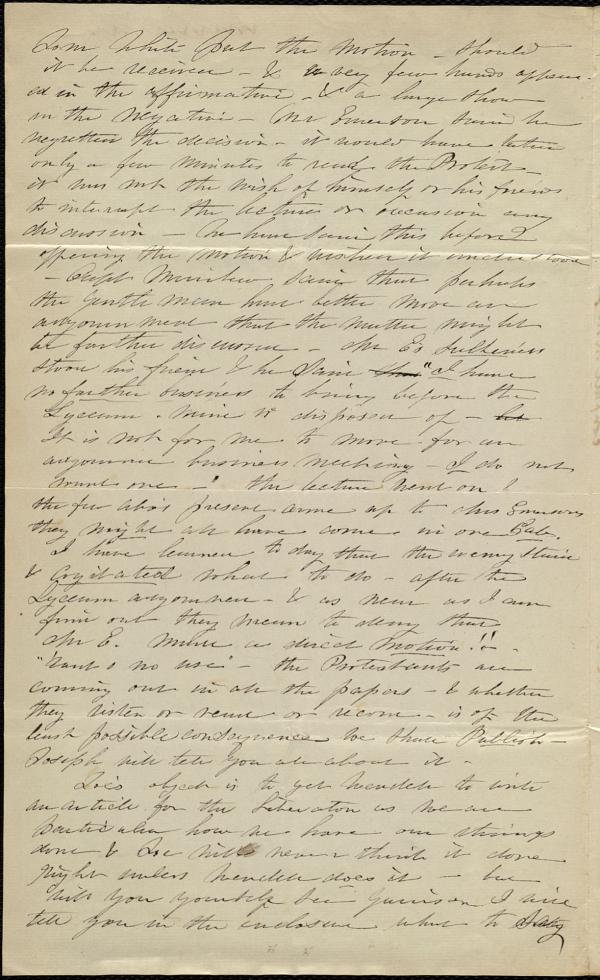 Tom White put the motion - should
it be received - & very few hands appear-
ed in the affirmative - & a large show
in the negative - Mr Emerson said he
regretted the decision - it would have taken
only a few minutes to read the Protest -
it was not the wish of himself or his friends
to interrupt the lecture or occasion any
discussion - he have said this before
offering the motion & wished it understood
- said that perhaps
the gentleman had better move an
adjournment that the matter might
be further discussed - Mr E's
stood his friend & he said "I have
no further business to bring before the
Lyceum. mine is disposed of -
It is not for me to move for an
adjourned business meeting - I do not
want one -" the lecture went on!
the few abo's present came up to Mrs Emersons
they might all have come in one Cab.
I have learned to day that the enemy staid
& Cogitated what to do - after the
Lyceum adjourned - & as near as I can
find out they mean to deny that
Mr E. made a direct motion!! -
"Tant's no use" - the Protestants are
coming out in all the papers - & whether
they listen or read or record - is of the
least possible consequence We shall Publish -
Joseph will tell you all about it -
Joe's object is to get Wendell to write
an article for the Liberator as we are
particular how we have our things
done & Joe will never think it done
right unless Wendell does it - but
will you yourself bid Garrison I will
tell you in the enclosure what to say